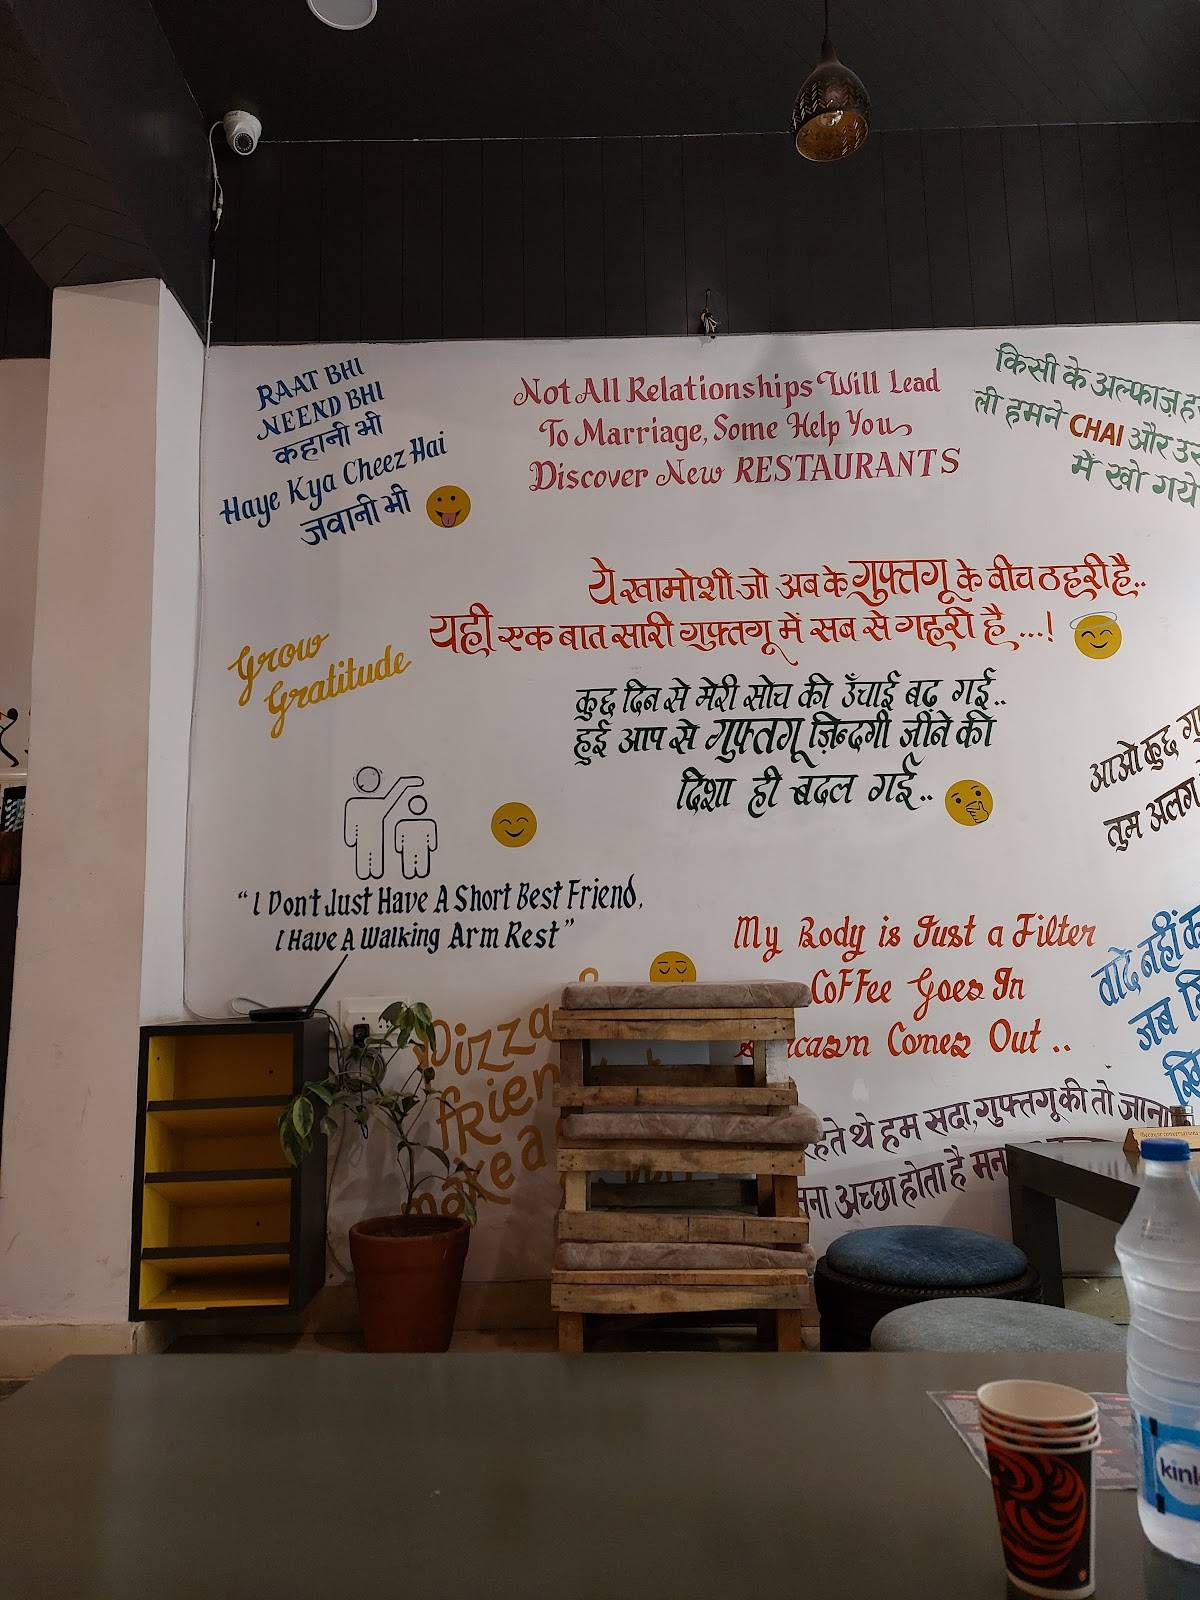 RAAT BHI
NEEND BHI
कहानी भी
Haye Kya Cheez Hai
जवानी भी
Not All Relationships Will Lead
To Marriage, Some Help You
Discover New RESTAURANTS
किसी के अल्फाज़
ली हमने CHAI और
में खो गये
ये खामोशी जो अब के गुफ्तगू के बीच ठहरी है..
यही एक बात सारी गुफ़्तगू में सब से गहरी है ...!
Grow
Gratitude
कुछ दिन से मेरी सोच की उँचाई बढ़ गई..
हुई आप से गुफ़्तगू ज़िन्दगी जीने की
दिशा ही बदल गई..
आओ कुछ
तुम अलग
"I Don't Just Have A Short Best Friend,
I Have A Walking Arm Rest"
My Body is Just a Filter
Coffee Goes In
Comes Out ..
वादे नहीं
जब
Pizza
make a
थे हम सदा, गुफ्तगू की तो जाना
अच्छा होता है
kinl